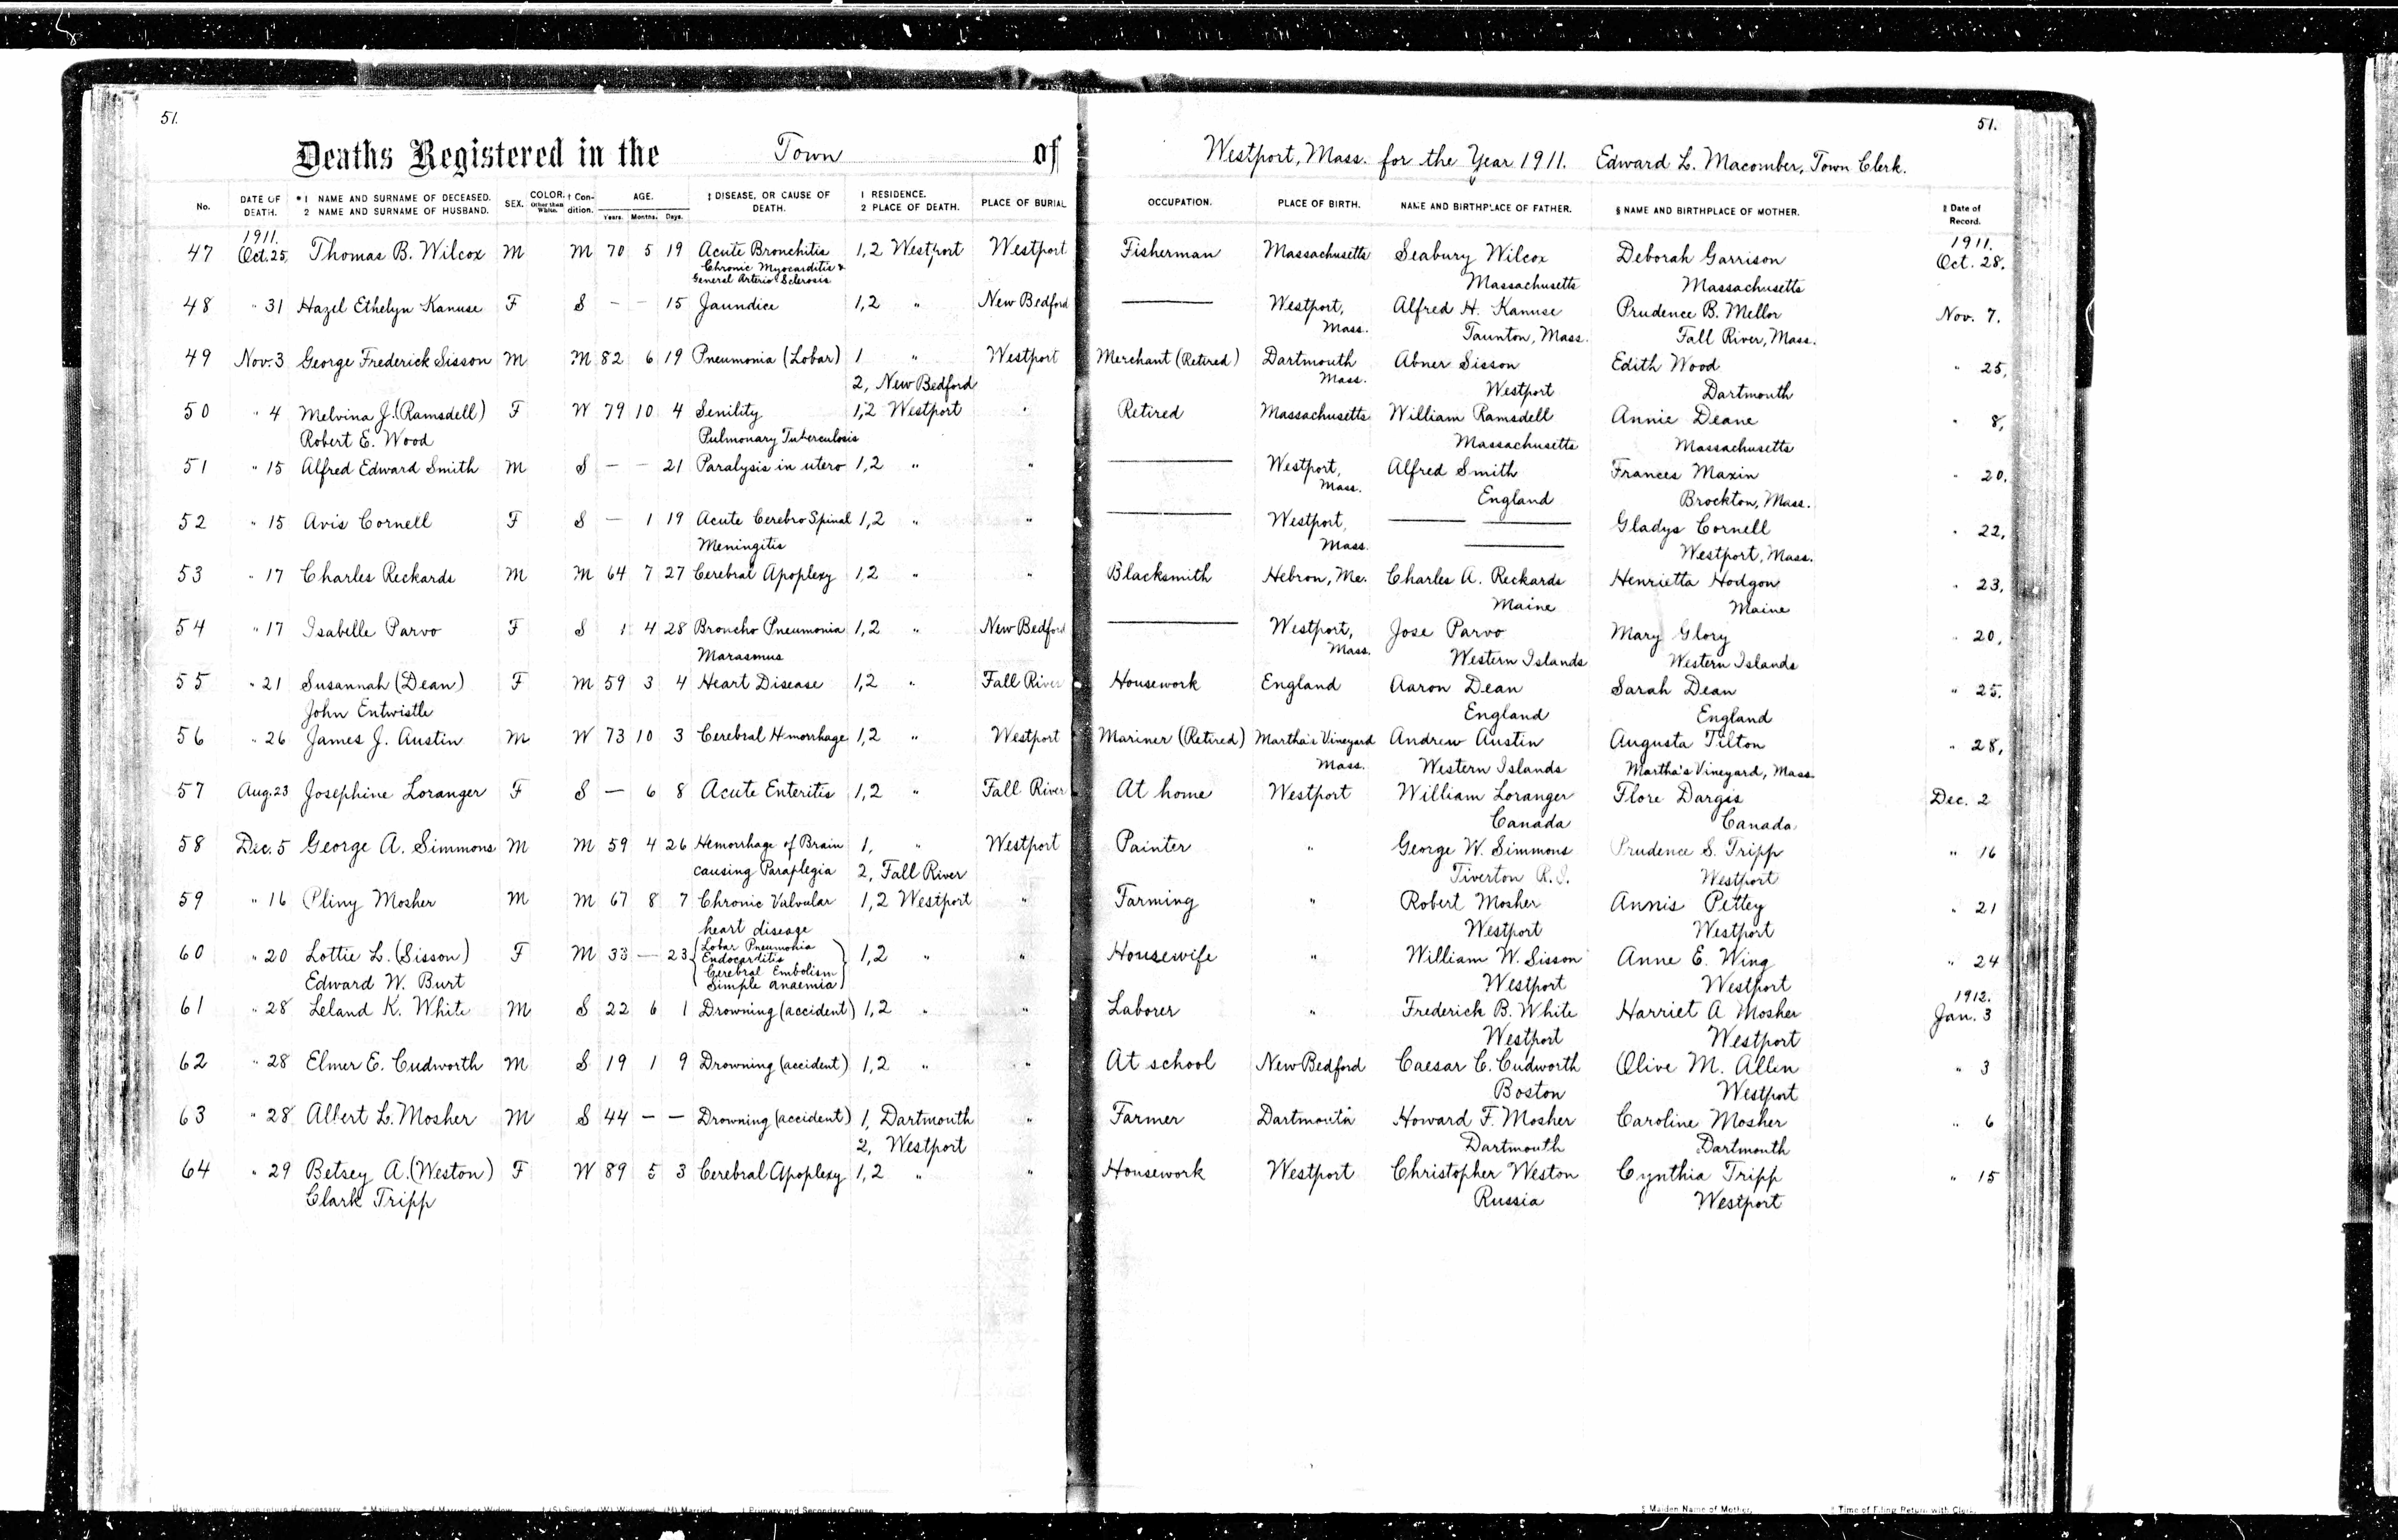 51. 51.
Deaths Registered in the Town of Westport, Mass. for the Year 1911. Edward L. Macomber, Town Clerk.
No. DATE OF DEATH. *1 NAME AND SURNAME OF DECEASED. 2 NAME AND SURNAME OF HUSBAND. SEX. COLOR. Other than White. † Condition. AGE. Years. Months. Days. ‡ DISEASE, OR CAUSE OF DEATH. 1 RESIDENCE. 2 PLACE OF DEATH. PLACE OF BURIAL OCCUPATION. PLACE OF BIRTH. NAME AND BIRTHPLACE OF FATHER. § NAME AND BIRTHPLACE OF MOTHER. ‖ Date of Record.
1911. 1911.
47 Oct. 25, Thomas B. Wilcox M M 70 5 19 Acute Bronchitis 1,2 Westport Westport Fisherman Massachusetts Seabury Wilcox Deborah Garrison Oct. 28.
Chronic Myocarditis & Massachusetts Massachusetts
General Arterio Sclerosis
48 " 31 Hazel Ethelyn Kanuse F S - - 15 Jaundice 1,2 " New Bedford — Westport, Alfred H. Kanuse Prudence B. Mellor Nov. 7.
Mass. Taunton, Mass. Fall River, Mass.
49 Nov. 3 George Frederick Sisson M M 82 6 19 Pneumonia (Lobar) 1 " Westport Merchant (Retired) Dartmouth Abner Sisson Edith Wood " 25,
2, New Bedford Mass. Westport Dartmouth
50 " 4 Melvina J. (Ramsdell) F W 79 10 4 Senility 1,2 Westport " Retired Massachusetts William Ramsdell Annie Deane " 8,
Robert E. Wood Pulmonary Tuberculosis Massachusetts Massachusetts
51 " 15 Alfred Edward Smith M S - - 21 Paralysis in utero 1,2 " " — Westport, Alfred Smith Frances Maxin " 20.
Mass. England Brockton, Mass.
52 " 15 Avis Cornell F S - 1 19 Acute Cerebro Spinal 1,2 " " — Westport, — — Gladys Cornell " 22,
Meningitis Mass. — Westport, Mass.
53 " 17 Charles Reckards M M 64 7 27 Cerebral Apoplexy 1,2 " " Blacksmith Hebron, Me. Charles A. Reckards Henrietta Hodgon " 23,
Maine Maine
54 " 17 Isabelle Parvo F S 1 4 28 Broncho Pneumonia 1,2 " New Bedford — Westport, Jose Parvo Mary Glory " 20,
Marasmus Mass. Western Islands Western Islands
55 " 21 Susannah (Dean) F M 59 3 4 Heart Disease 1,2 " Fall River Housework England Aaron Dean Sarah Dean " 25.
John Entwistle England England
56 " 26 James J. Austin M W 73 10 3 Cerebral Hemorrhage 1,2 " Westport Mariner (Retired) Martha's Vineyard Andrew Austin Augusta Tilton " 28,
Mass. Western Islands Martha's Vineyard, Mass.
57 Aug. 23 Josephine Loranger F S - 6 8 Acute Enteritis 1,2 " Fall River At home Westport William Loranger Flore Dargis Dec. 2
Canada Canada
58 Dec. 5 George A. Simmons M M 59 4 26 Hemorrhage of Brain 1, " Westport Painter " George W. Simmons Prudence S. Tripp " 16
causing Paraplegia 2, Fall River Tiverton R.I. Westport
59 " 16 Pliny Mosher M M 67 8 7 Chronic Valvular 1,2 Westport " Farming " Robert Mosher Annis Pettey " 21
heart disease Westport Westport
60 " 20 Lottie L. (Sisson) F M 33 - 23 Lobar Pneumonia 1,2 " " Housewife " William W. Sisson Anne E. Wing " 24
Endocarditis
Edward W. Burt Cerebral Embolism Westport Westport
Simple anaemia 1912.
61 " 28 Leland K. White M S 22 6 1 Drowning (accident) 1,2 " " Laborer " Frederick B. White Harriet A Mosher Jan. 3
Westport Westport
62 " 28 Elmer E. Cudworth M S 19 1 9 Drowning (accident) 1,2 " " At school New Bedford Caesar C. Cudworth Olive M. Allen " 3
Boston Westport
63 " 28 Albert L. Mosher M S 44 - - Drowning (accident) 1, Dartmouth " Farmer Dartmouth Howard F. Mosher Caroline Mosher " 6
2, Westport Dartmouth Dartmouth
64 " 29 Betsey A. (Weston) F W 89 5 3 Cerebral Apoplexy 1,2 " " Housework Westport Christopher Weston Cynthia Tripp " 15
Clark Tripp Russia Westport
§ Maiden Name of Mother. ‖ Time of Filing Return with Clerk.